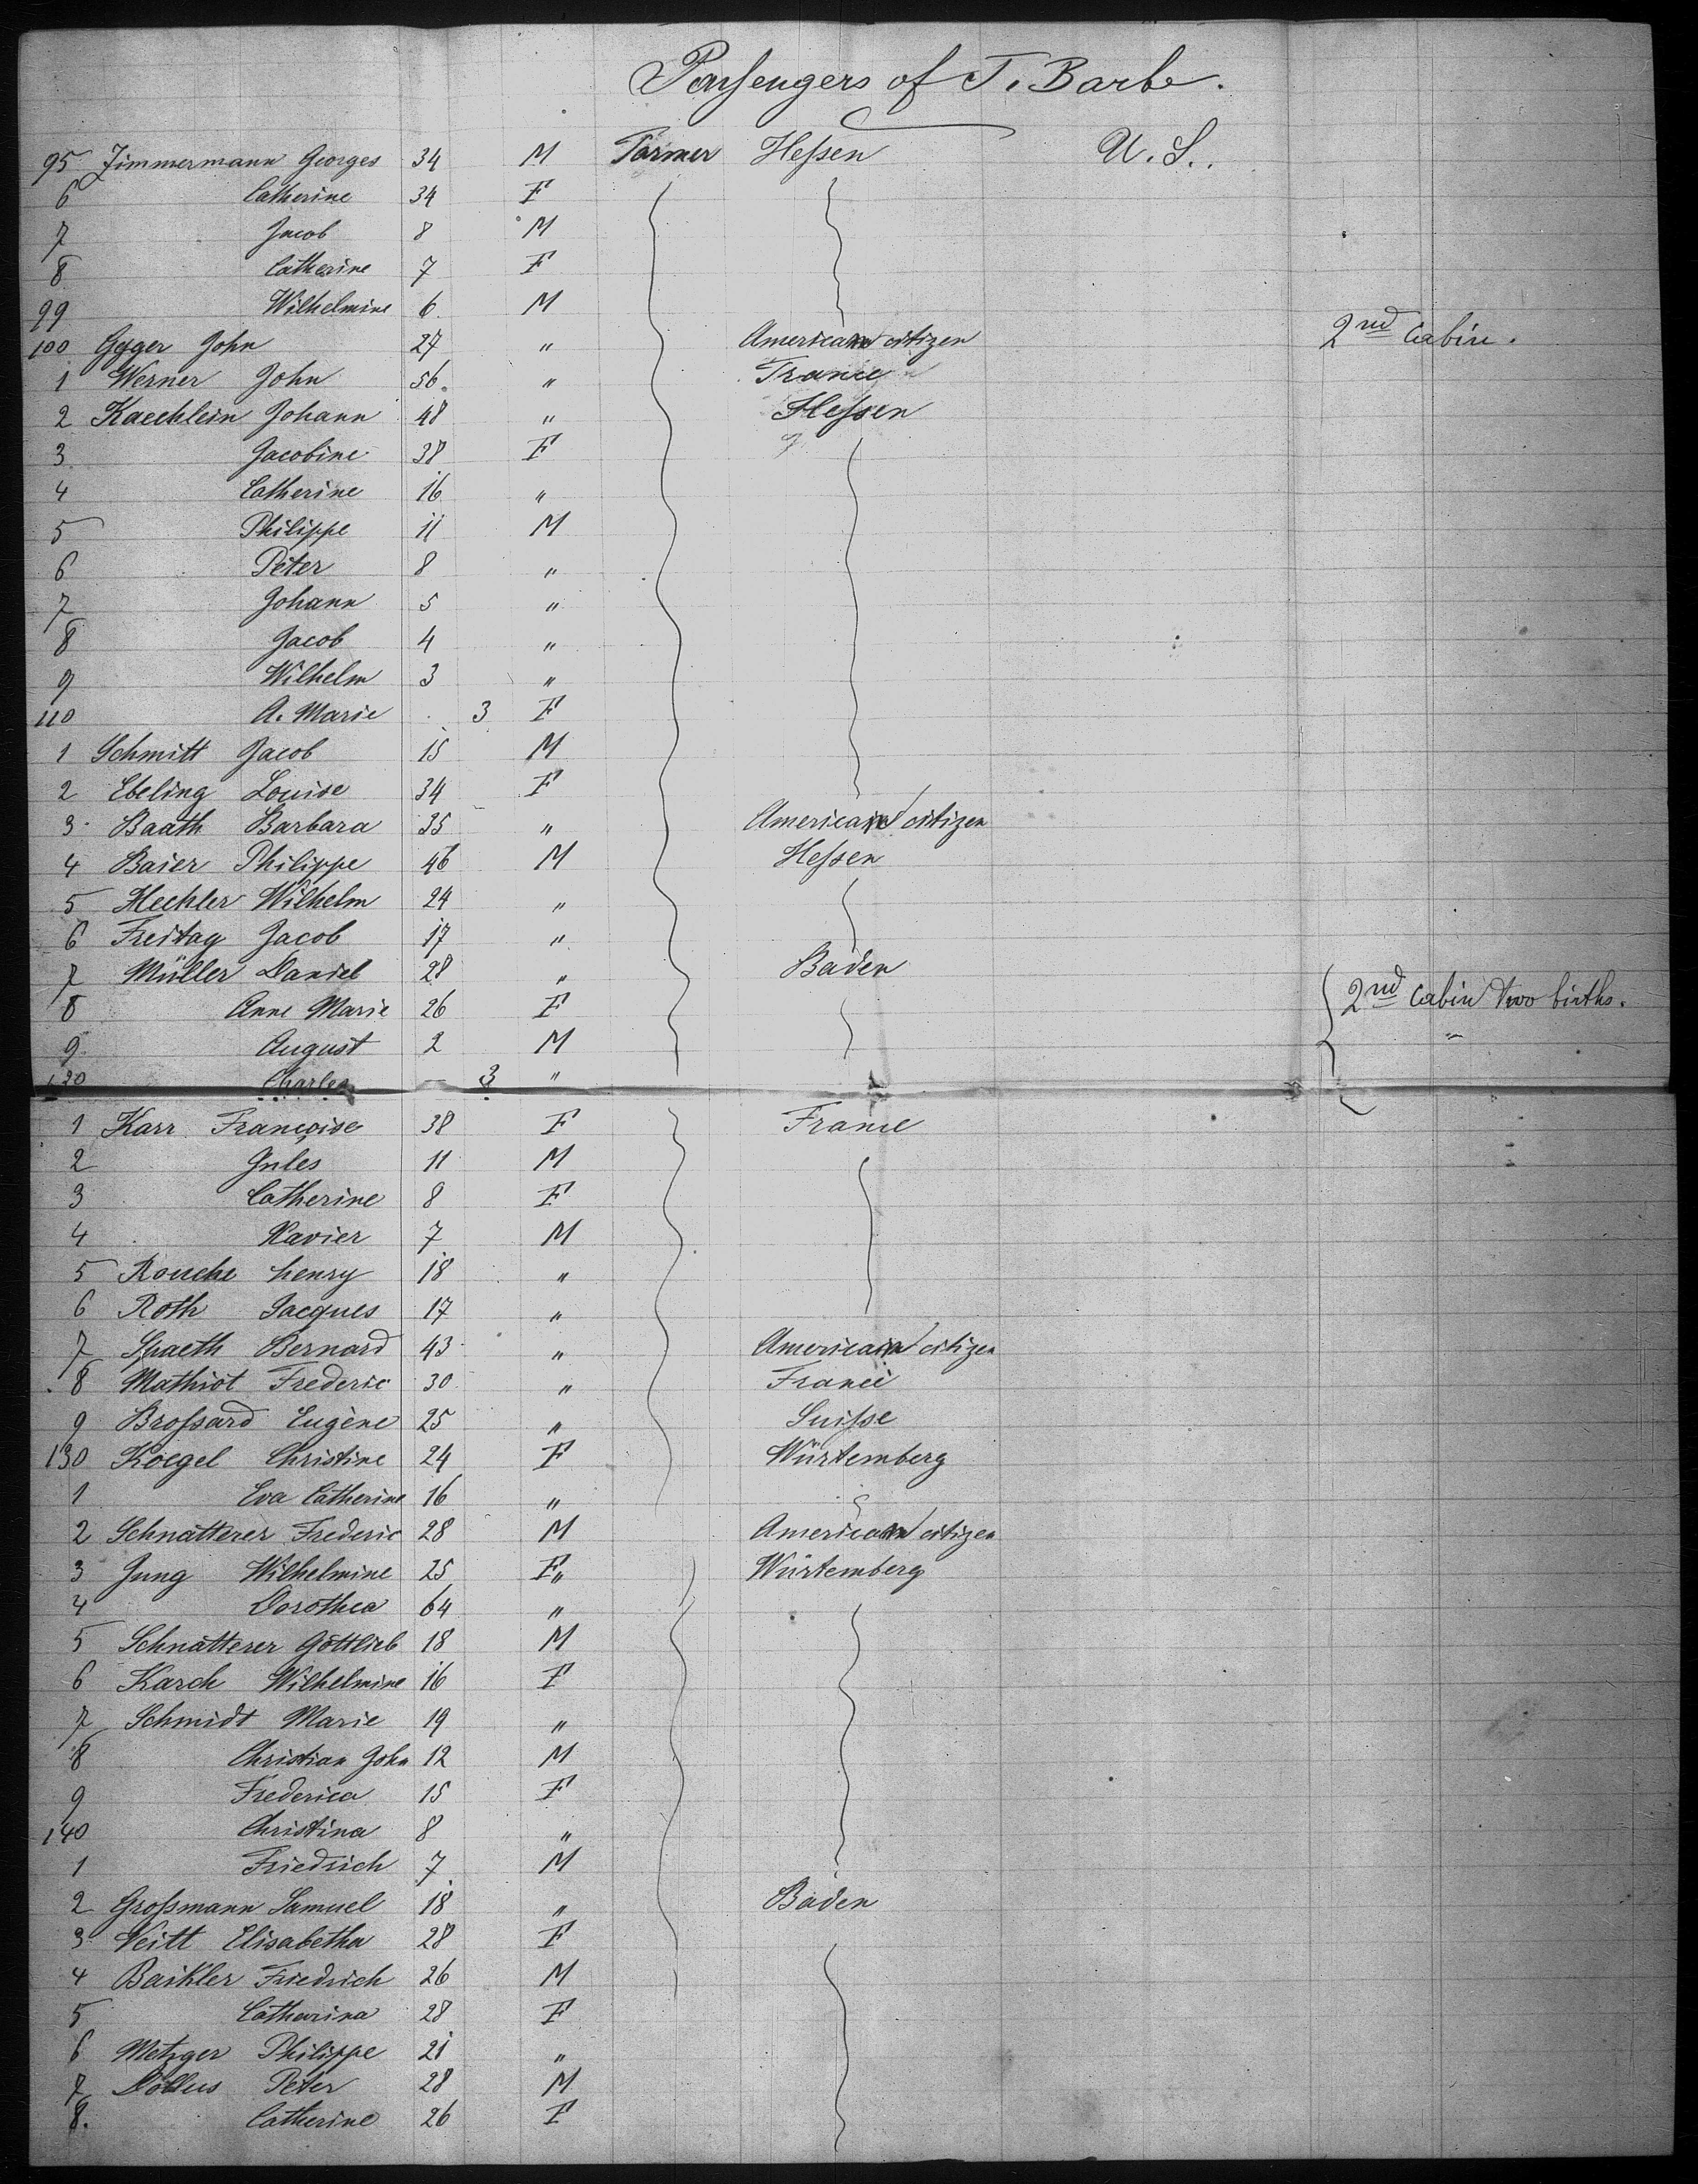 Passengers of J. Barbe.
95 Zimmermann Georges 34 M Farmer Hessen U. S.
6 Catherine 34 F
7 Jacob 8 M
8 Catherine 7 F
99 Wilhelmine 6 M
100 Geger John 27 " American citizen 2nd Cabin.
1 Werner John 56 " France
2 Kaechlein Johann 48 " Hessen
3 Jacobine 38 F
4 Catherine 16 "
5 Philippe 11 M
6 Peter 8 "
7 Johann 5 "
8 Jacob 4 "
9 Wilhelm 3 "
110 A. Marie 3 F
1 Schmitt Jacob 15 M
2 Ebeling Louise 34 F
3 Baath Barbara 35 " American citizen
4 Baier Philippe 46 M Hessen
5 Hechler Wilhelm 24 "
6 Freitag Jacob 17 "
7 Müller Daniel 28 " Baden
8 Anne Marie 26 F 2nd Cabin two births.
9 August 2 M "
120 Charles 3 "
1 Karr Françoise 38 F France
2 Jules 11 M
3 Catherine 8 F
4 Xavier 7 M
5 Rouche henry 18 "
6 Roth Jacques 17 "
7 Spaeth Bernard 43 " American citizen
8 Mathiot Frederic 30 " France
9 Brossard Eugène 25 " Suisse
130 Koegel Christine 24 F Würtemberg
1 Eva Catherine 16 "
2 Schnatterer Frederic 28 M American citizen
3 Jung Wilhelmine 25 F" Würtemberg
4 Dorothea 64 "
5 Schnatterer Gottlieb 18 M
6 Karch Wilhelmine 16 F
7 Schmidt Marie 19 "
8 Christian John 12 M
9 Frederica 15 F
140 Christina 8 "
1 Friedrich 7 M
2 Grossmann Samuel 18 " Baden
3 Veitt Elisabetha 28 F
4 Baikler Friedrich 26 M
5 Catharina 28 F
6 Metzger Philippe 21 "
7 Peter 28 M
8. Catherine 26 F